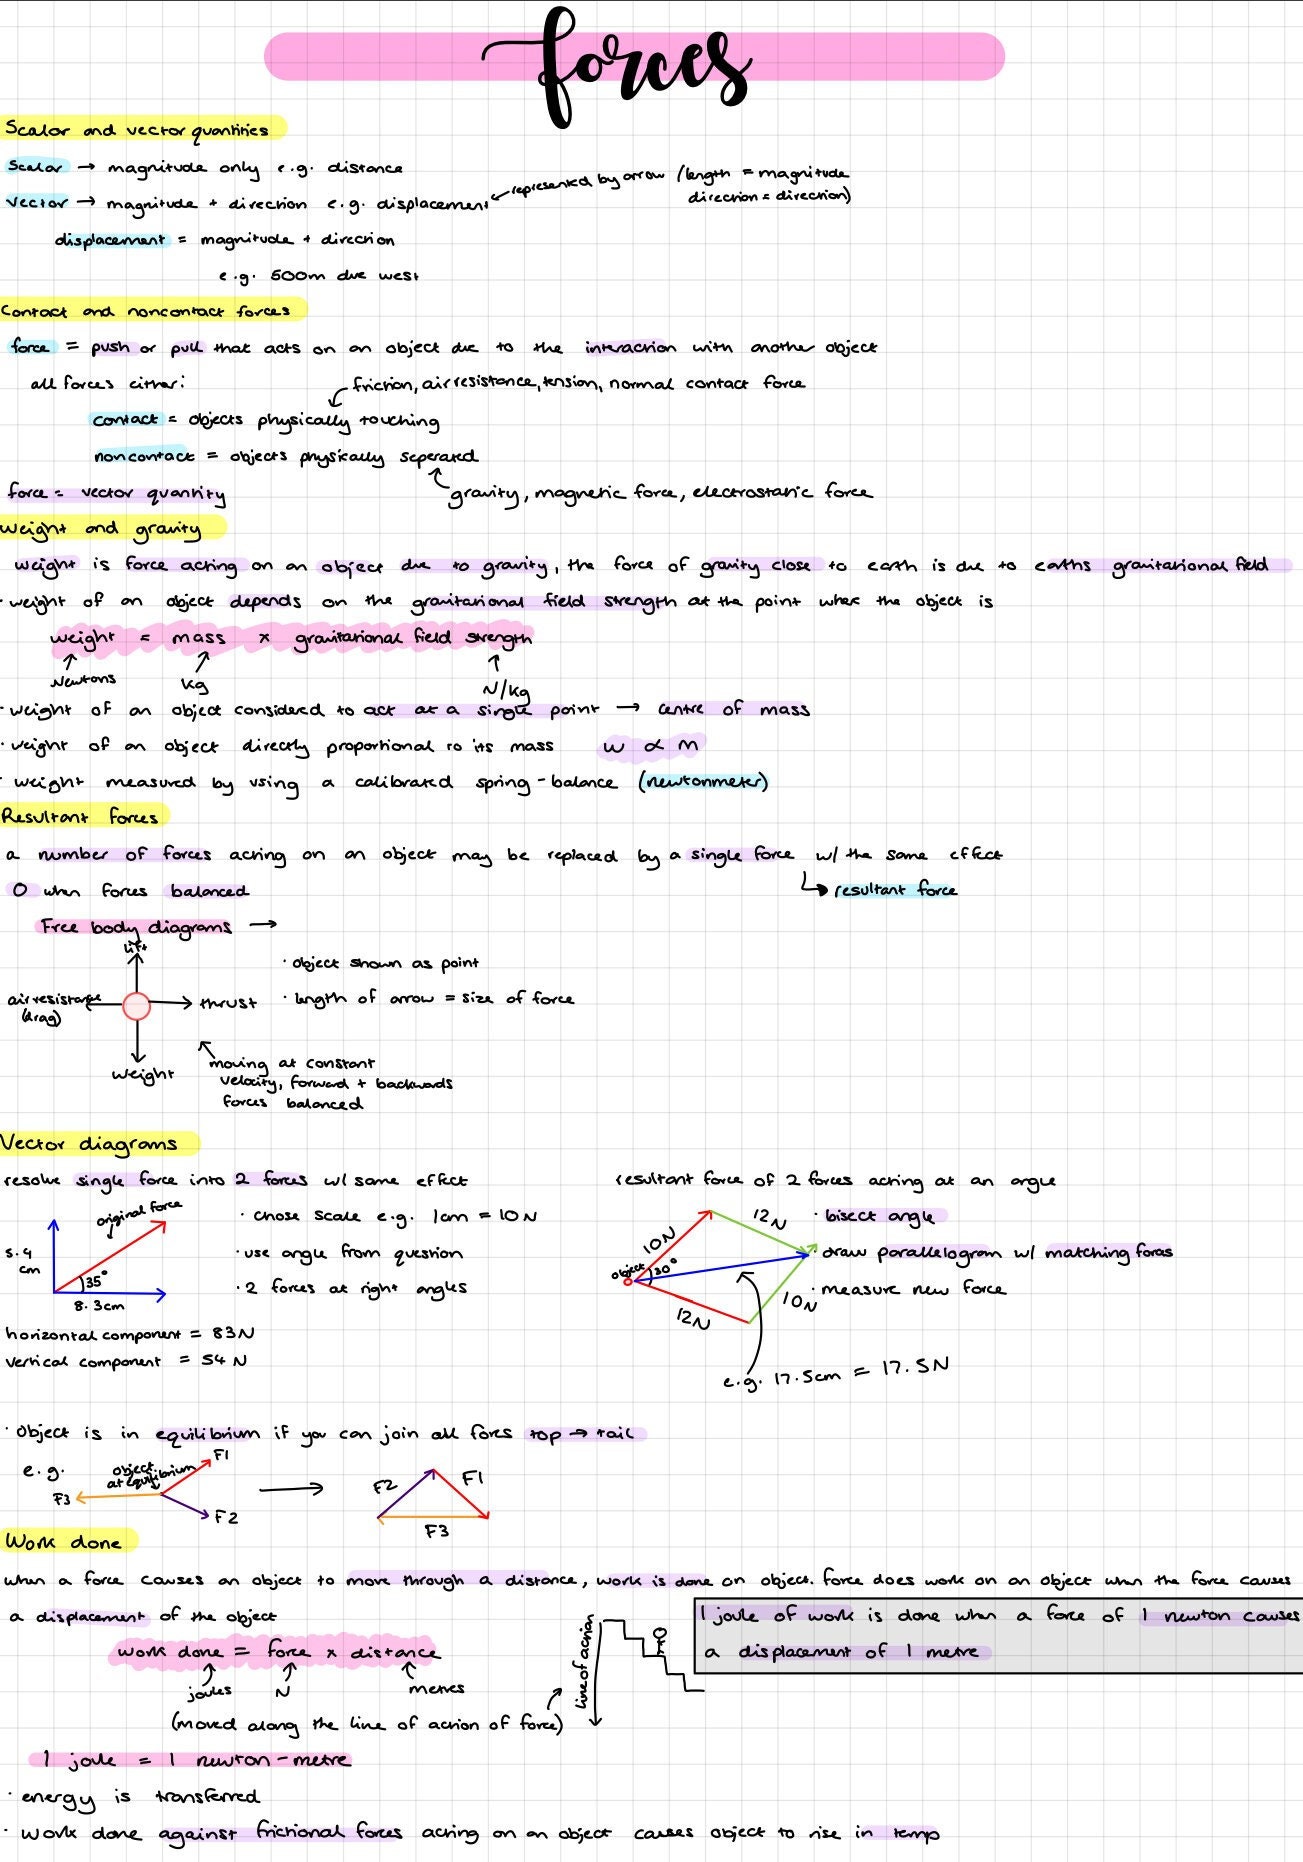 forces
Scalar and vector quantities
Scalar → magnitude only e.g. distance
Vector → magnitude + direction e.g. displacement
represented by arrow (length = magnitude
direction = direction)
displacement = magnitude + direction
e.g. 500m due west
Contact and noncontact forces
force = push or pull that acts on an object due to the interaction with another object
all forces either:
friction, air resistance, tension, normal contact force
contact = objects physically touching
noncontact = objects physically seperated
force = vector quantity
gravity, magnetic force, electrostatic force
Weight and gravity
weight is force acting on an object due to gravity, the force of gravity close to earth is due to eaths gravitational field
· weight of an object depends on the gravitational field strength at the point where the object is
weight = mass x gravitational field strength
Newtons
kg
N/kg
· weight of an object considered to act at a single point → centre of mass
· weight of an object directly proportional to its mass w ∝ m
· weight measured by using a calibrated spring-balance (newtonmeter)
Resultant forces
a number of forces acting on an object may be replaced by a single force w/ the same effect
0 when forces balanced
resultant force
Free body diagrams →
lift
· object shown as point
air resistance
(drag)
thrust
· length of arrow = size of force
weight
moving at constant
velocity, forward + backwards
forces balanced
Vector diagrams
resolve single force into 2 forces w/ same effect
original force
5.4
cm
35°
8.3cm
· chose scale e.g. 1cm = 10N
· use angle from question
· 2 forces at right angles
horizontal component = 83N
vertical component = 54N
resultant force of 2 forces acting at an angle
10N
12N
object
30°
12N
10N
· bisect angle
· draw parallelogram w/ matching foras
· measure new force
e.g. 17.5cm = 17.5N
· Object is in equilibrium if you can join all fores top → tail
e.g.
object
at equilibrium
F1
F3
F2
F2
F1
F3
Work done
when a force causes an object to move through a distance, work is done on object. force does work on an object when the force causes
a displacement of the object
1 joule of work is done when a force of 1 newton causes
a displacement of 1 metre
work done = force x distance
joules
N
metres
line of action
(moved along the line of action of force)
1 joule = 1 newton-metre
· energy is transferred
· work done against frictional forces acting on an object causes object to rise in temp